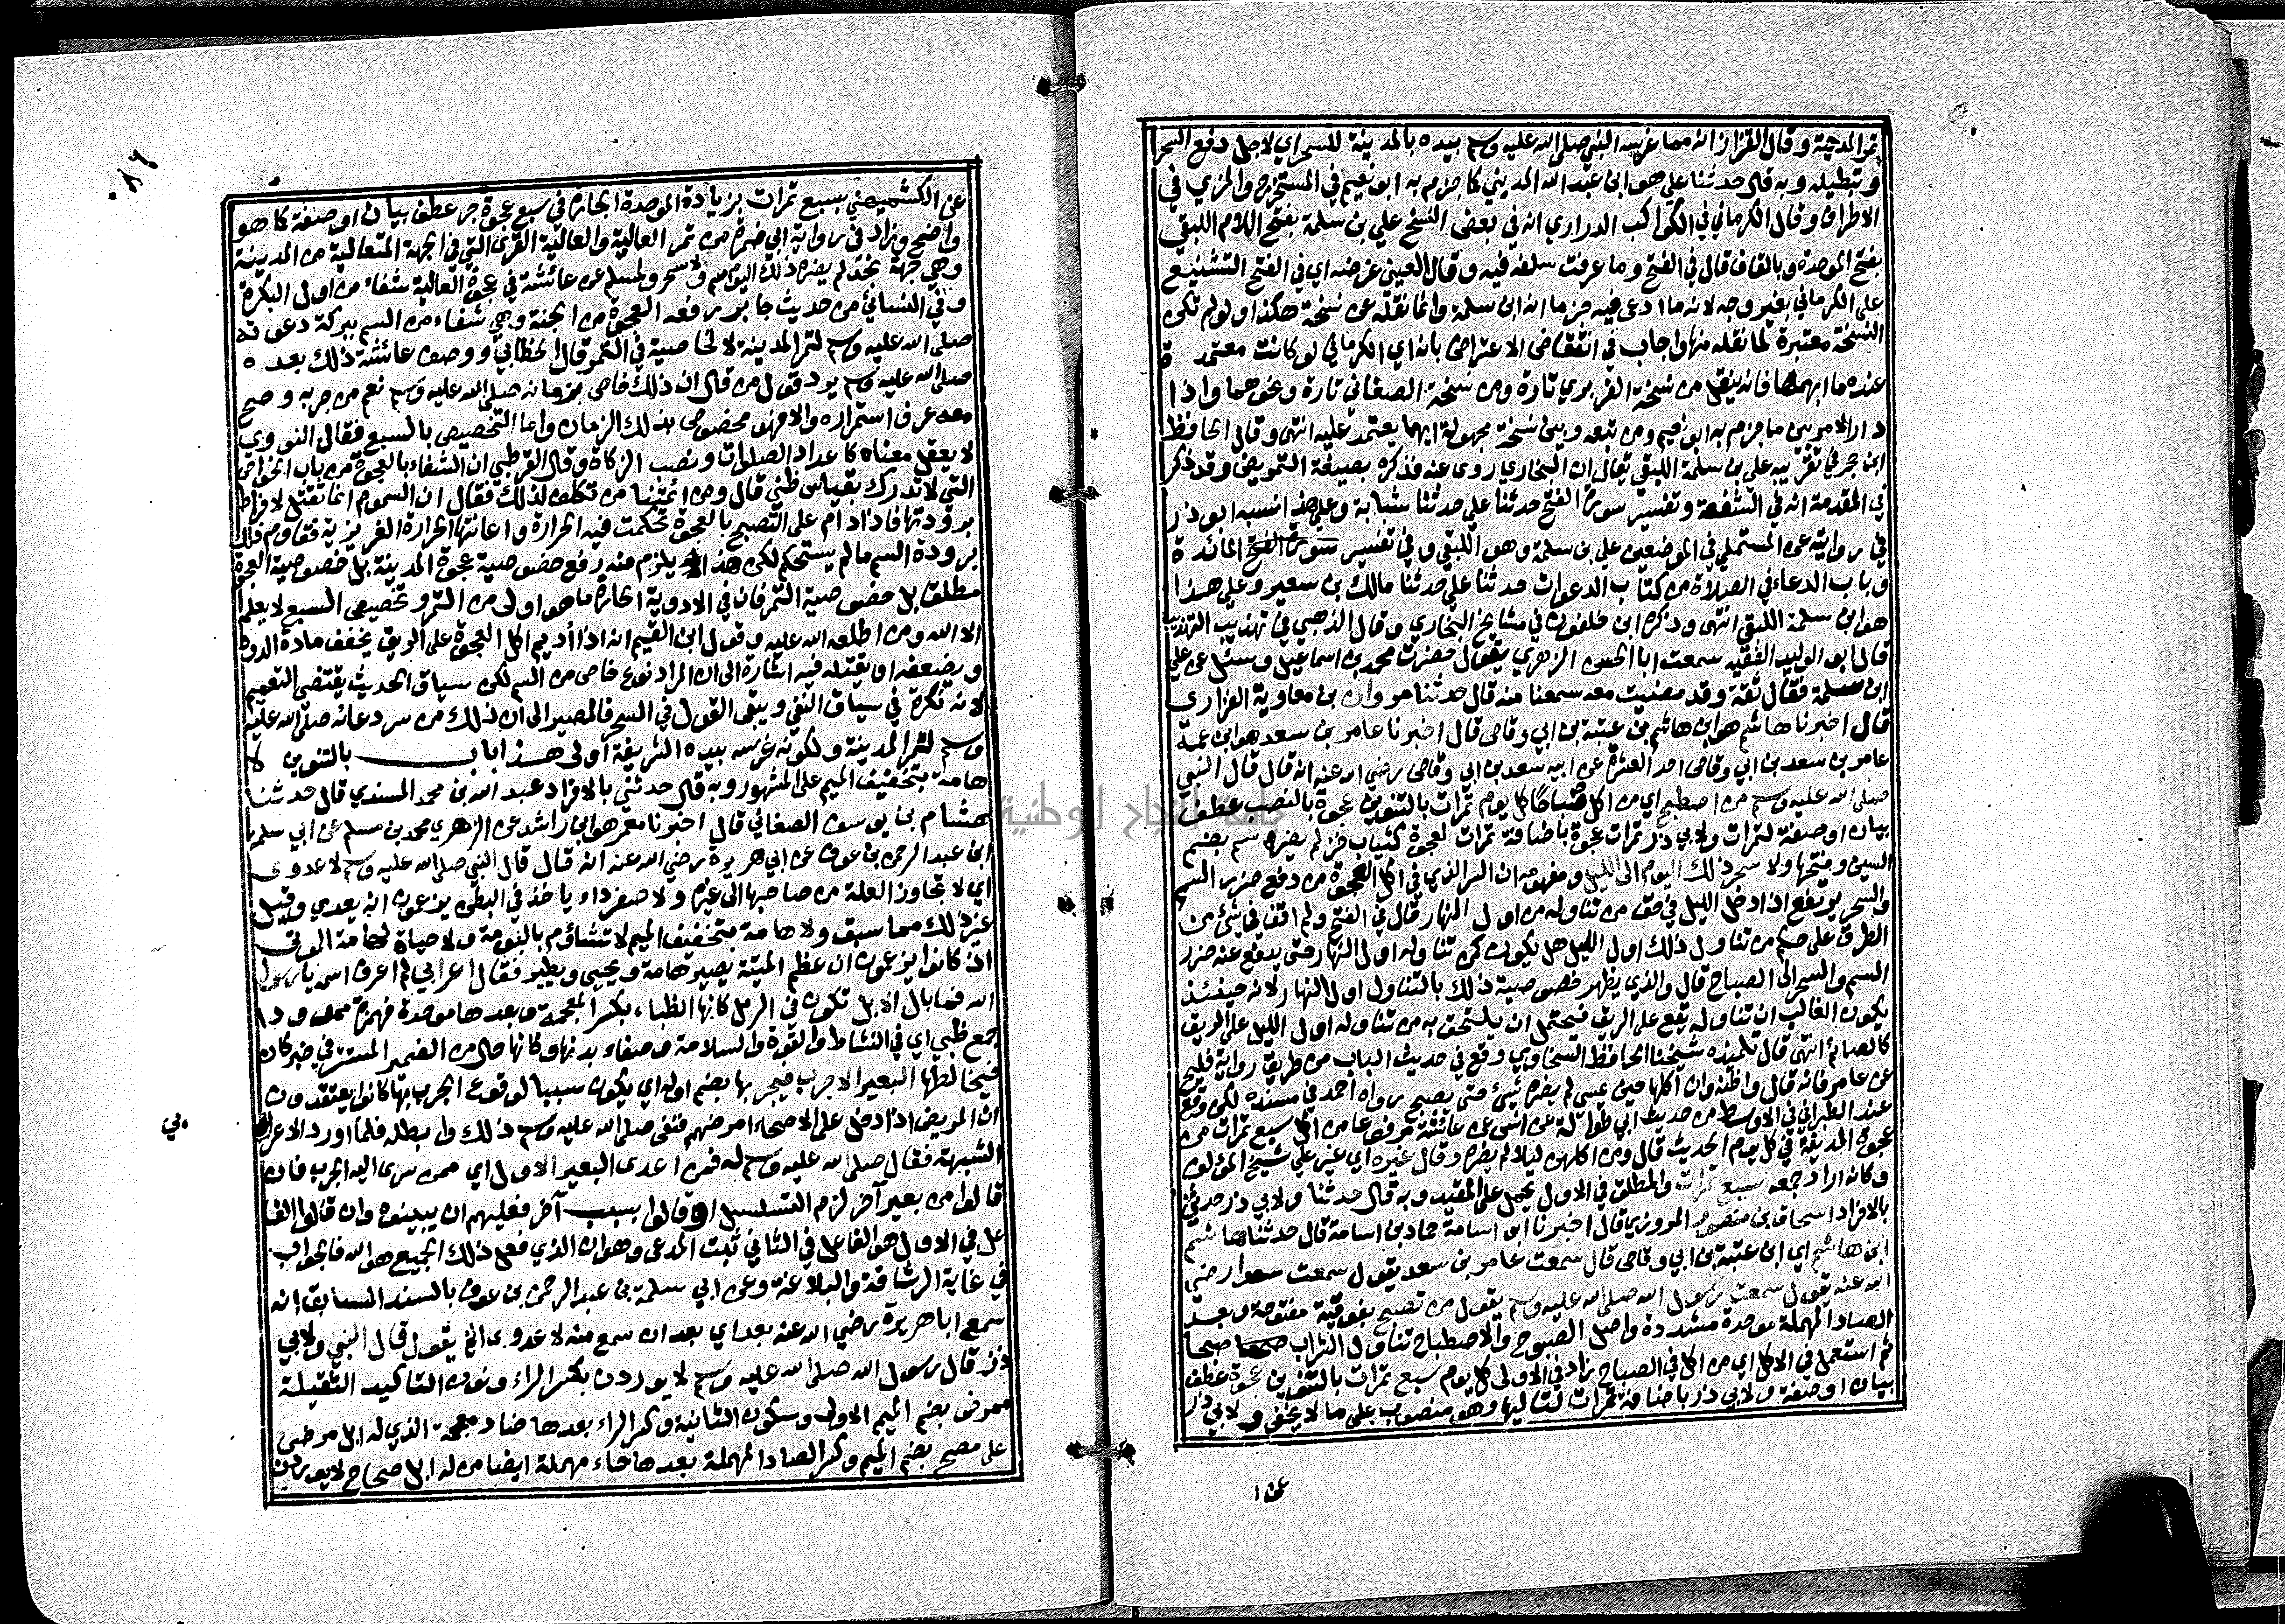 تمر المدينة وقال القزاز انه مما غرسه النبي صلى الله عليه وسلم بيده بالمدينة للسحر اي لاجل دفع السحر
وتبطيله وبه قال حدثنا علي هو ابن عبد الله المديني كما جزم به ابو نعيم في المستخرج والمزي في
الاطراف وقال الكرماني في الكواكب الدراري انه في بعض النسخ علي بن سلمة بفتح اللام اللبقي
بفتح الموحدة وبالقاف قال في الفتح وما عرفت سلفه فيه وقال العيني غرضه اي في الفتح التشنيع
على الكرماني بغير وجه لانه ما ادعى فيه جزما انه ابن سلمة وانما نقله عن نسخة هكذا ولو لم تكن
النسخة معتبرة لما نقله منها واجاب في انتقاض الاعتراض بان اي الكرماني لو كانت معتمدة
عنده ما ابهمها فانه ينقل من نسخة الفربري تارة ومن نسخة الصغاني تارة ونحوهما واذا
دار الامر بين ما جزم به ابو نعيم ومن تبعه وبين نسخة مجهولة ايهما يعتمد عليه انتهى وقال الحافظ
ابن حجر في تقريبه علي بن سلمة اللبقي يقال ان البخاري روى عنه فذكره بصيغة التمريض وقد ذكر
في المقدمة انه في الشفعة وتفسير سورة الفتح حدثنا علي حدثنا شبابة وعلي هذا نسبه ابو ذر
في روايته عن المستملي في الموضعين علي بن سلمة وهو اللبقي وفي تفسير سورة الفتح المائدة
وباب الدعاء في الصلاة من كتاب الدعوات حدثنا علي حدثنا مالك بن سعير وعلي هذا
هو ابن سلمة اللبقي انتهى وذكره ابن خلفون في مشايخ البخاري وقال الذهبي في تهذيب التهذيب
قال ابو الوليد الفقيه سمعت ابا الحسن الزهري يقول حضرت محمد بن اسماعيل وسئل عن علي
ابن سلمة فقال ثقة وقد مضيت معه سمعنا منه قال حدثنا مروان بن معاوية الفزاري
قال اخبرنا هاشم هو ابن هاشم بن عتبة بن ابي وقاص قال اخبرنا عامر بن سعد هو ابن عمة
عامر بن سعد بن ابي وقاص احد العشرة عن ابيه سعد بن ابي وقاص رضي الله عنه انه قال قال النبي
صلى الله عليه وسلم من اصطبح اي من اكل صباحا كل يوم تمرات بالتنوين عجوة بالنصب عطف
بيان او صفة لتمرات ولابي ذر تمرات عجوة باضافة تمرات لعجوة كثياب خز لم يضره سم بضم
السين وفتحها ولا سحر ذلك اليوم الى الليل ومفهومه ان السر الذي في اكل العجوة من دفع ضرر السم
والسحر يرتفع اذا دخل الليل في حق من تناوله من اول النهار قال في الفتح ولم اقف في شئ من
الطرق على حكم من تناول ذلك اول الليل هل يكون كمن تناوله اول النهار حتى يدفع عنه ضرر
السم والسحر الى الصباح قال والذي يظهر خصوصية ذلك بالتناول اول النهار لانه حينئذ
يكون الغالب ان تناوله يقع على الريق فيحتمل ان يلتحق به من تناوله اول الليل على الريق
كالصائم انتهى قال تلميذه شيخنا الحافظ السخاوي وقع في حديث الباب من طريق رواية فليح
عن عامر فانه قال واظنه وان اكلها حين يمسي لم يضره شئ حتى يصبح رواه احمد في مسنده لكن وقع
عند الطبراني في الاوسط من حديث ابي طوالة عن انس عن عائشة مرفوعا من اكل سبع تمرات من
عجوة المدينة في كل يوم الحديث قال ومن اكلهن ليلا لم يضره وقال غيره اي غير علي شيخ المؤلف
وكانه اراد جمعه سبع تمرات والمطلق في الاول يحمل على المقيد وبه قال حدثنا ولابي ذر حدثني
بالافراد اسحاق بن منصور المروزي قال اخبرنا ابو اسامة حماد بن اسامة قال حدثنا هاشم
ابن هاشم اي ابن عتبة بن ابي وقاص قال سمعت عامر بن سعد يقول سمعت سعدا رضي
الله عنه يقول سمعت رسول الله صلى الله عليه وسلم يقول من تصبح بفوقية مفتوحة وبعد
الصاد المهملة موحدة مشددة واصل الصبوح والاصطباح تناول الشراب صبحا
ثم استعمل في الاكل اي من اكل في الصباح زاد في الاولى كل يوم سبع تمرات بالتنوين عجوة عطف
بيان او صفة ولابي ذر باضافة تمرات لتاليها وهو منصوب على ما لا يخفى ولابي ذر
عن الكشميهني بسبع تمرات بزيادة الموحدة الجارة في سبع عجوة جر عطف بيان او صفة كما هو
واضح وزاد في رواية ابي ضمرة من تمر العالية والعالية القرى التي في الجهة المتعالية من المدينة
وهي جهة نجد لم يضره ذلك اليوم سم ولا سحر ولمسلم عن عائشة في عجوة العالية شفاء من اول البكرة
وفي النسائي من حديث جابر رفعه العجوة من الجنة وهي شفاء من السم ببركة دعوته
صلى الله عليه وسلم لتمر المدينة لا لخاصية في التمر قال الخطابي ووصف عائشة ذلك بعده
صلى الله عليه وسلم يرد قول من قال ان ذلك خاص بزمانه صلى الله عليه وسلم نعم من جربه وصح
معه عرف استمراره والا فهو مخصوص بذلك الزمان واما التخصيص بالسبع فقال النووي
لا يعقل معناه كاعداد الصلوات ونصب الزكاة وقال القرطبي ان الشفاء بالعجوة من باب الخواص
التي لا تدرك بقياس ظني قال ومن ائمتنا من تكلف لذلك فقال ان السموم انما تقتل لافراط
برودتها فاذا دام على التصبح بالعجوة تحكمت فيه الحرارة واعانتها الحرارة الغريزية فقاوم ذلك
برودة السم ما لم يستحكم لكن هذا يلزم منه رفع خصوصية عجوة المدينة بل خصوصية العجوة
مطلقا بل خصوصية التمر فان في الادوية الحارة ما هو اولى من التمر وتخصيص السبع لا يعلم
الا الله ومن اطلعه الله عليه وقول ابن القيم انه اذا أديم اكل العجوة على الريق يخفف مادة الدود
ويضعفه او يقتله فيه اشارة الى ان المراد نوع خاص من السم لكن سياق الحديث يقتضي التعميم
لانه نكرة في سياق النفي ويبقى القول في السحر فالمصير الى ان ذلك من سر دعائه صلى الله عليه
وسلم لتمر المدينة ولكونه غرسه بيده الشريفة اولى هذا باب بالتنوين لا
هامة بتخفيف الميم على المشهور وبه قال حدثني بالافراد عبد الله بن محمد المسندي قال حدثنا
هشام بن يوسف الصغاني قال اخبرنا معمر هو ابن راشد عن الزهري محمد بن مسلم عن ابي سلمة
ابن عبد الرحمن بن عوف عن ابي هريرة رضي الله عنه انه قال قال النبي صلى الله عليه وسلم لا عدوى
اي لا تجاوز العلة من صاحبها الى غيره ولا صفر داء ياخذ في البطن يزعمون انه يعدي وقيل
غير ذلك مما سبق ولا هامة بتخفيف الميم لا تشاؤم بالبومة ولا حياة لهامة الموتى
اذ كانوا يزعمون ان عظم الميتة يصير هامة ويحيى ويطير فقال اعرابي لم اعرف اسمه يا رسول
الله فما بال الابل تكون في الرمل كانها الظباء بكسر المعجمة وبعدها موحدة فهمزة ممدودا
جمع ظبي اي في النشاط والقوة والسلامة وصفاء بدنها وكانها حال من الضمير المستتر في خبر كان
فيخالطها البعير الاجرب فيجربها بضم اوله اي يكون سببا لوقوع الجرب بها كانوا يعتقدون
ان المريض اذا دخل على الاصحاء امرضهم فنفى صلى الله عليه وسلم ذلك وابطله فلما اورد الاعرابي
الشبهة فقال صلى الله عليه وسلم له فمن اعدى البعير الاول اي ممن سرى اليه الجرب فان
قالوا من بعير آخر لزم التسلسل او قالوا بسبب آخر فعليهم ان يبينوه وان قالوا الفا
عل في الاول هو الفاعل في الثاني ثبت المدعى وهو ان الذي فعل ذلك الجميع هو الله فالجواب
في غاية الرشاقة والبلاغة وعن ابي سلمة بن عبد الرحمن بن عوف بالسند السابق انه
سمع ابا هريرة رضي الله عنه بعد اي بعد ان سمع منه لا عدوى الخ يقول قال النبي ولابي
ذر قال رسول الله صلى الله عليه وسلم لا يوردن بكسر الراء ونون التاكيد الثقيلة
ممرض بضم الميم الاولى وسكون الثانية وكسر الراء بعدها ضاد معجمة الذي له ابل مرضى
على مصح بضم الميم وكسر الصاد المهملة بعدها حاء مهملة ايضا من له ابل صحاح لا يوردن
جامعة النجاح الوطنية